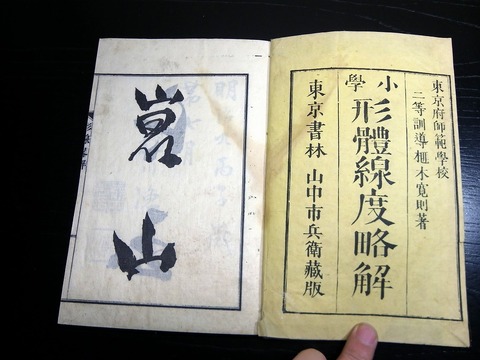 東京府師範學校
二等訓導榧木寛則著
小學
形體線度略解
東京書林 山中市兵衛藏版